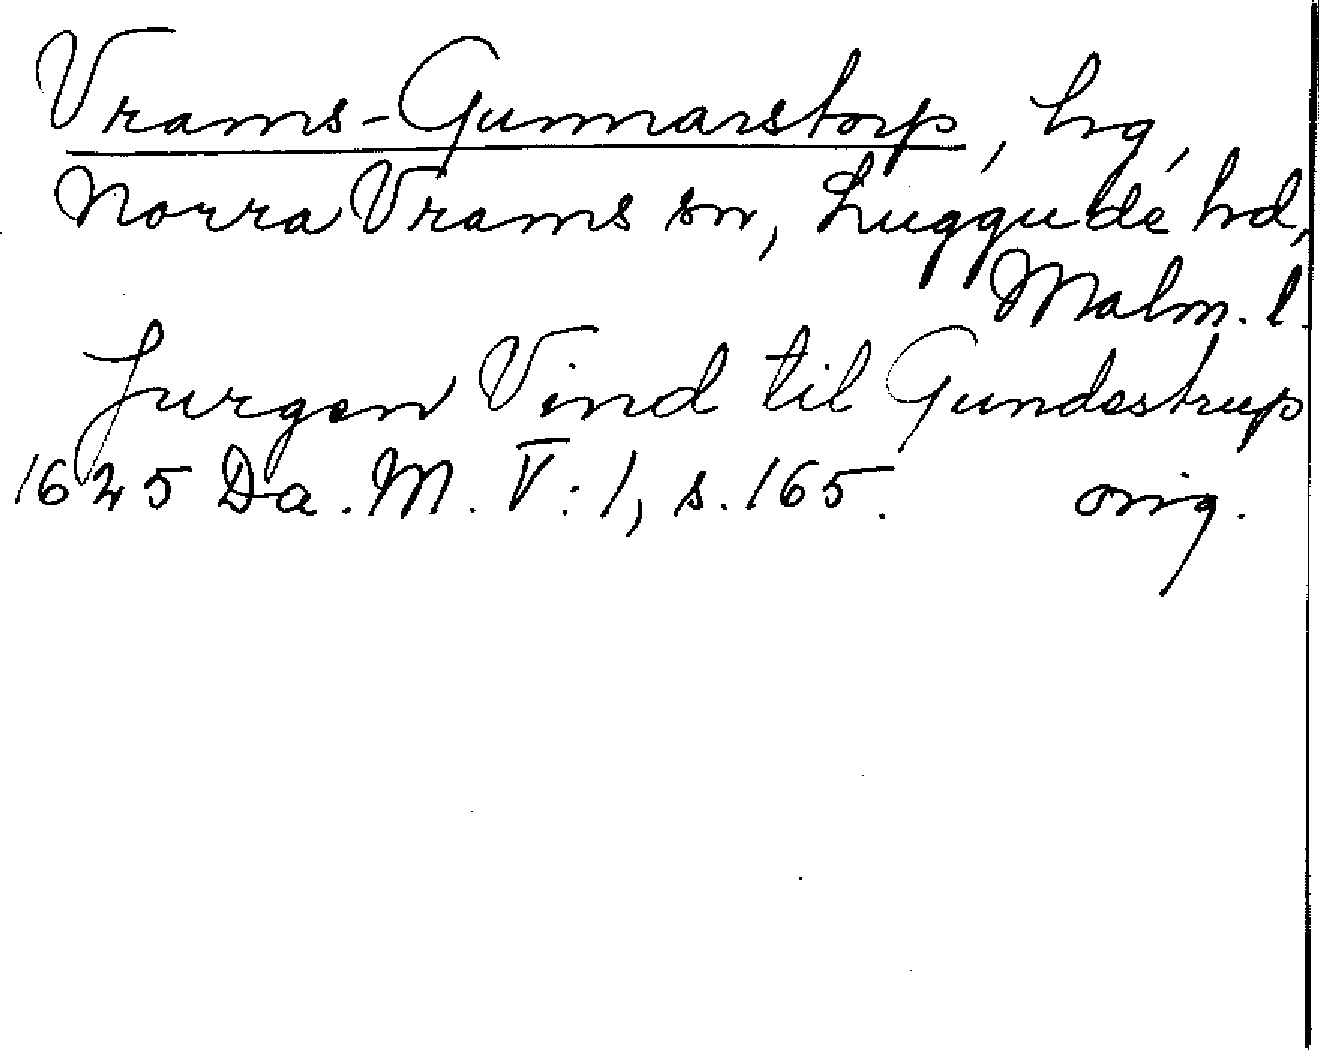 Vrams-Gunnarstorp, hrg,
Norra Vrams sn, Luggude hd,
Malm. l.
Jurgen Vind til Gundestrup
1625 Da. M. V: 1, s. 165. orig.